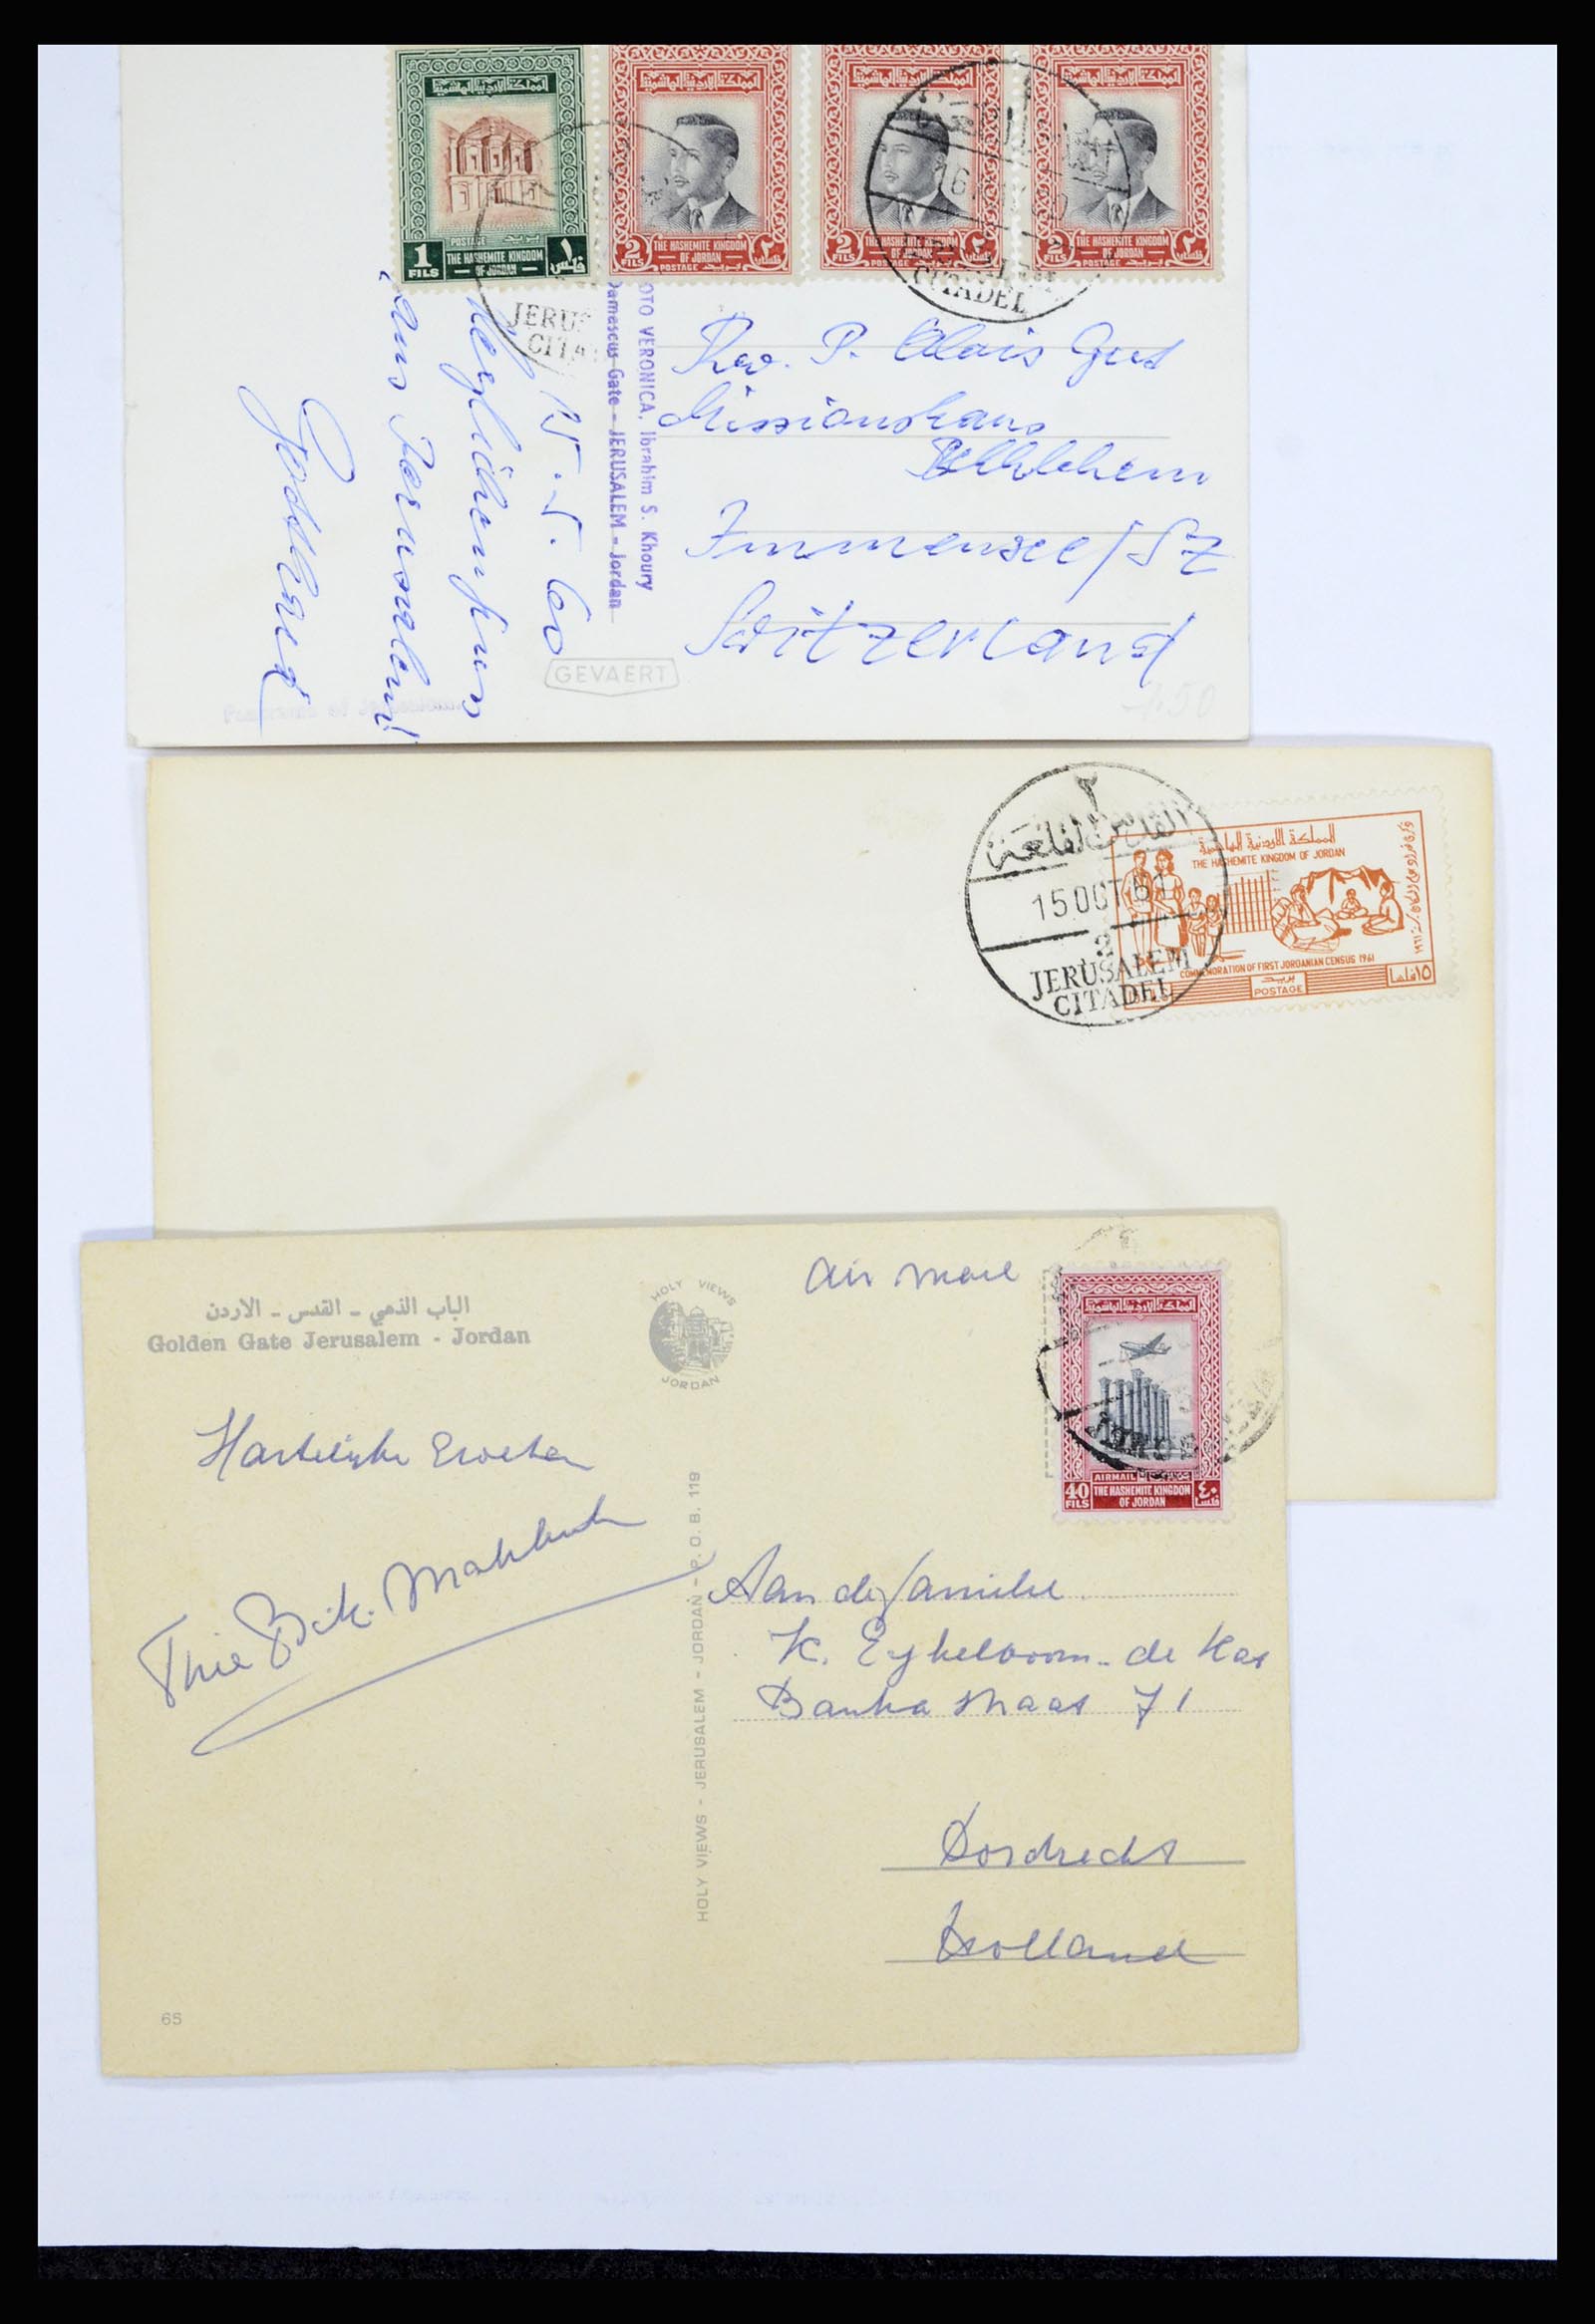 المملكة الاردنية الهاشمية
المملكة الاردنية الهاشمية
المملكة الاردنية الهاشمية
المملكة الاردنية الهاشمية
POSTAGE بريد
1 FILS THE HASHEMITE KINGDOM OF JORDAN ١ فلس
2 FILS THE HASHEMITE KINGDOM OF JORDAN POSTAGE بريد ٢ فلس
2 FILS THE HASHEMITE KINGDOM OF JORDAN POSTAGE بريد ٢ فلس
2 FILS THE HASHEMITE KINGDOM OF JORDAN POSTAGE بريد ٢ فلس
16
CITADEL
JERUS
CITA
15.5.60
aus Jerusalem!
Gotthard
OTO VERONICA, Ibrahim S. Khoury
Damascus Gate - JERUSALEM - Jordan
Rev. P. Alois Gut
Missionshaus
Bethlehem
Immensee/SZ
Switzerland
GEVAERT
Panorama of Jerusalem
1.50
٢
القدس القلعة
15 OCT 61
2
JERUSALEM
CITADEL
المملكة الاردنية الهاشمية
THE HASHEMITE KINGDOM OF JORDAN
COMMEMORATION OF FIRST JORDANIAN CENSUS 1961
بريد
POSTAGE
١٥ فلسا
الباب الذهبي - القدس - الاردن
Golden Gate Jerusalem - Jordan
HOLY VIEWS
JORDAN
Air Mail
المملكة الاردنية الهاشمية
AIRMAIL
40 FILS THE HASHEMITE KINGDOM OF JORDAN ٤٠ فلس
Hartelijke Groeten
HOLY VIEWS - JERUSALEM - JORDAN - P. O. B. 119
Aan de familie
K. Eykelboom - de Kat
Banka straat 71
Dordrecht
Holland
65